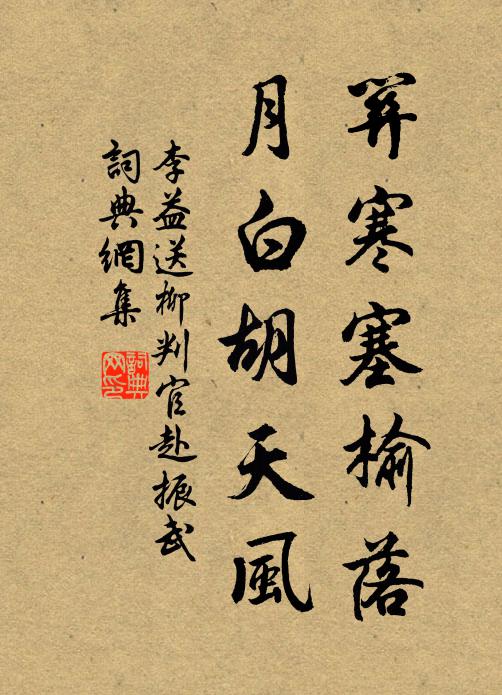 關寒塞榆落
月白胡天風
李益送柳判官赴振武
詞典網集
詞典
网印